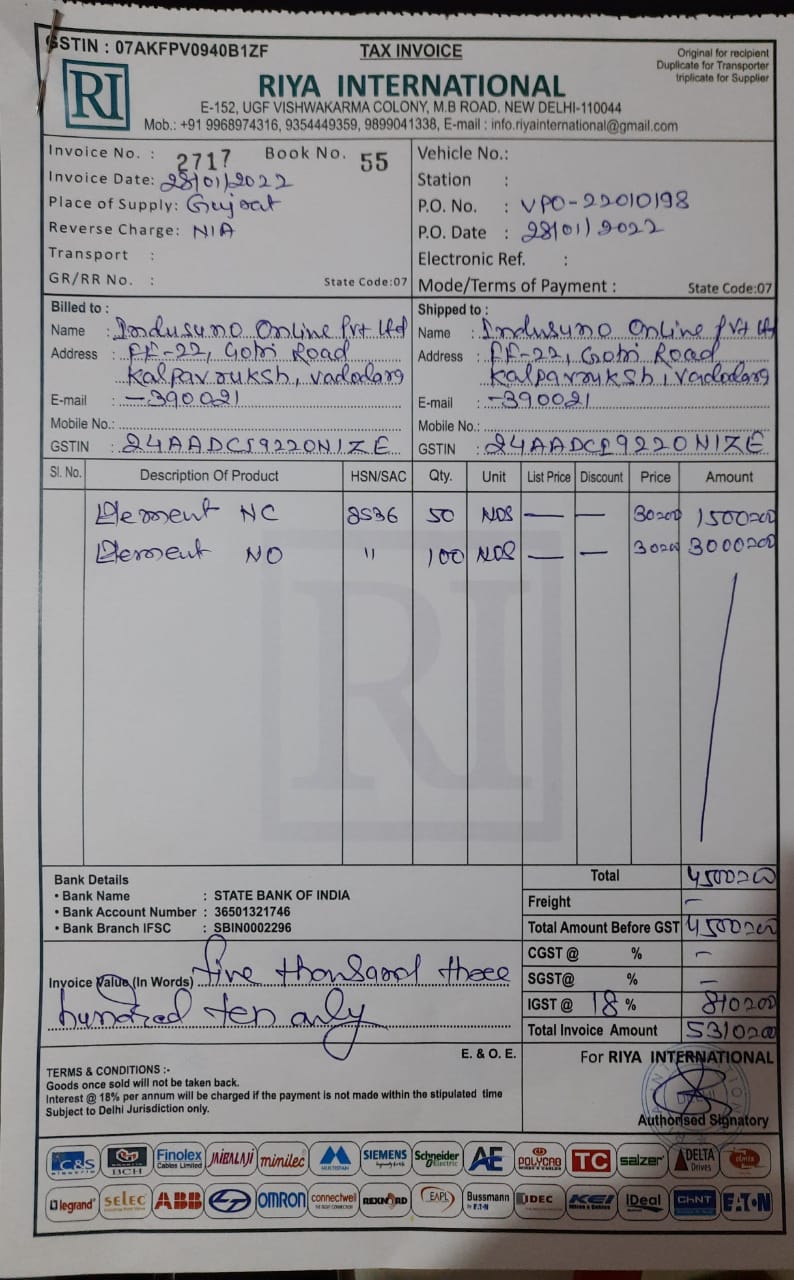 GSTIN : 07AKFPV0940B1ZF
TAX INVOICE
Original for recipient
Duplicate for Transporter
triplicate for Supplier
RI
RIYA INTERNATIONAL
E-152, UGF VISHWAKARMA COLONY, M.B ROAD. NEW DELHI-110044
Mob.: +91 9968974316, 9354449359, 9899041338, E-mail : info.riyainternational@gmail.com
Invoice No. : 2717 Book No. 55
Invoice Date: 28/01/2022
Place of Supply: Gujrat
Reverse Charge: N/A
Transport :
GR/RR No. : State Code:07
Vehicle No.:
Station :
P.O. No. : VPO-22010198
P.O. Date : 28/01/2022
Electronic Ref. :
Mode/Terms of Payment : State Code:07
Billed to :
Name : Indusuno Online Pvt Ltd
Address : FF-22, Gotri Road
Kalpavruksh, Vadodara
E-mail : -390021
Mobile No.:
GSTIN : 24AADCI9220N1ZE
Shipped to :
Name : Indusuno Online Pvt Ltd
Address : FF-22, Gotri Road
Kalpavruksh, Vadodara
E-mail : -390021
Mobile No.:
GSTIN : 24AADCI9220N1ZE
Sl. No. Description Of Product HSN/SAC Qty. Unit List Price Discount Price Amount
Element NC 8536 50 NOS — — 30=00 1500=00
Element NO " 100 NOS — — 30=00 3000=00
RI
Bank Details
• Bank Name : STATE BANK OF INDIA
• Bank Account Number : 36501321746
• Bank Branch IFSC : SBIN0002296
Total 4500=00
Freight -
Total Amount Before GST 4500=00
CGST @ % -
SGST@ % -
IGST @ 18 % 810=00
Total Invoice Amount 5310=00
Invoice Value (In Words) five thousand three
hundred ten only
E. & O. E.
TERMS & CONDITIONS :-
Goods once sold will not be taken back.
Interest @ 18% per annum will be charged if the payment is not made within the stipulated time
Subject to Delhi Jurisdiction only.
For RIYA INTERNATIONAL
Authorised Signatory
C&S BCH Finolex Cables Limited JAIBALAJI minilec SIEMENS Schneider Electric AE POLYCAB TC salzer DELTA Drives
legrand selec ABB OMRON connectwell REXNORD EAPL Bussmann by EATON IDEC KEI IDeal CHNT EATON